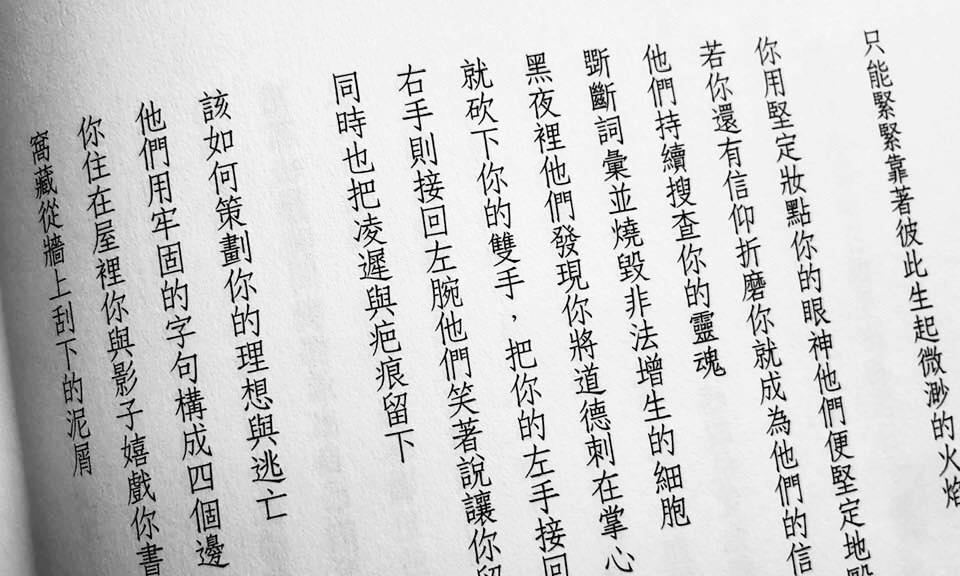 只能緊緊靠著彼此生起微渺的火焰
你用堅定妝點你的眼神他們便堅定地
若你還有信仰折磨你就成為他們的信
他們持續搜查你的靈魂
斲斷詞彙並燒毀非法增生的細胞
黑夜裡他們發現你將道德刺在掌心
就砍下你的雙手，把你的左手接回
右手則接回左腕他們笑著說讓你留
同時也把凌遲與疤痕留下
該如何策劃你的理想與逃亡
他們用牢固的字句構成四個邊
你住在屋裡你與影子嬉戲你書
窩藏從牆上刮下的泥屑